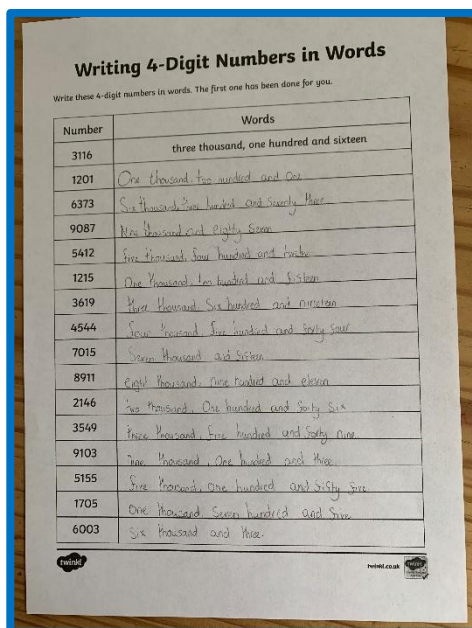 Writing 4-Digit Numbers in Words
Write these 4-digit numbers in words. The first one has been done for you.
Number Words
3116 three thousand, one hundred and sixteen
1201 One thousand, two hundred and one
6373 Six thousand, three hundred and seventy three
9087 Nine thousand and eighty seven
5412 five thousand, four hundred and
1215 One thousand, two hundred and fifteen
3619 three thousand, six hundred and nineteen
4544 four thousand, five hundred and forty four
7015 Seven thousand and fifteen
8911 eight thousand, nine hundred and eleven
2146 two thousand, One hundred and forty six
3549 three thousand, five hundred and forty nine.
9103 nine thousand, One hundred and three.
5155 five thousand, one hundred and fifty five
1705 One thousand Seven hundred and five
6003 Six thousand and three.
twinkl twinkl.co.uk